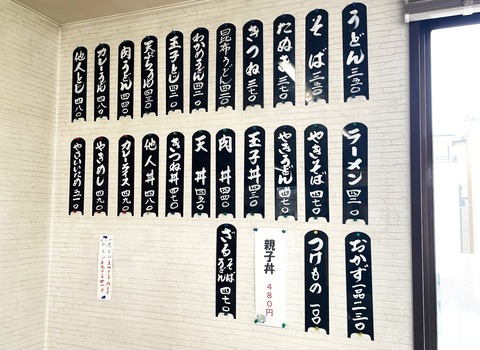 うどん 三五〇
そば 三五〇
たぬき 三七〇
きつね 三七〇
昆布うどん 四二〇
わかめうどん 四二〇
玉子とじ 四二〇
天ぷらうどん 四三〇
肉うどん 四四〇
カレーうどん 四八〇
他人とじ 四八〇
ラーメン 四三〇
やきそば 四七〇
やきうどん 四七〇
玉子丼 四三〇
肉丼 四四〇
天丼 四五〇
きつね丼 四四〇
他人丼 四八〇
カレーライス 四七〇
やきめし 四九〇
やさいいため 五二〇
おかず 一品 二三〇
つけもの 一〇〇
親子丼 480円
ざるそばうどん 四七〇